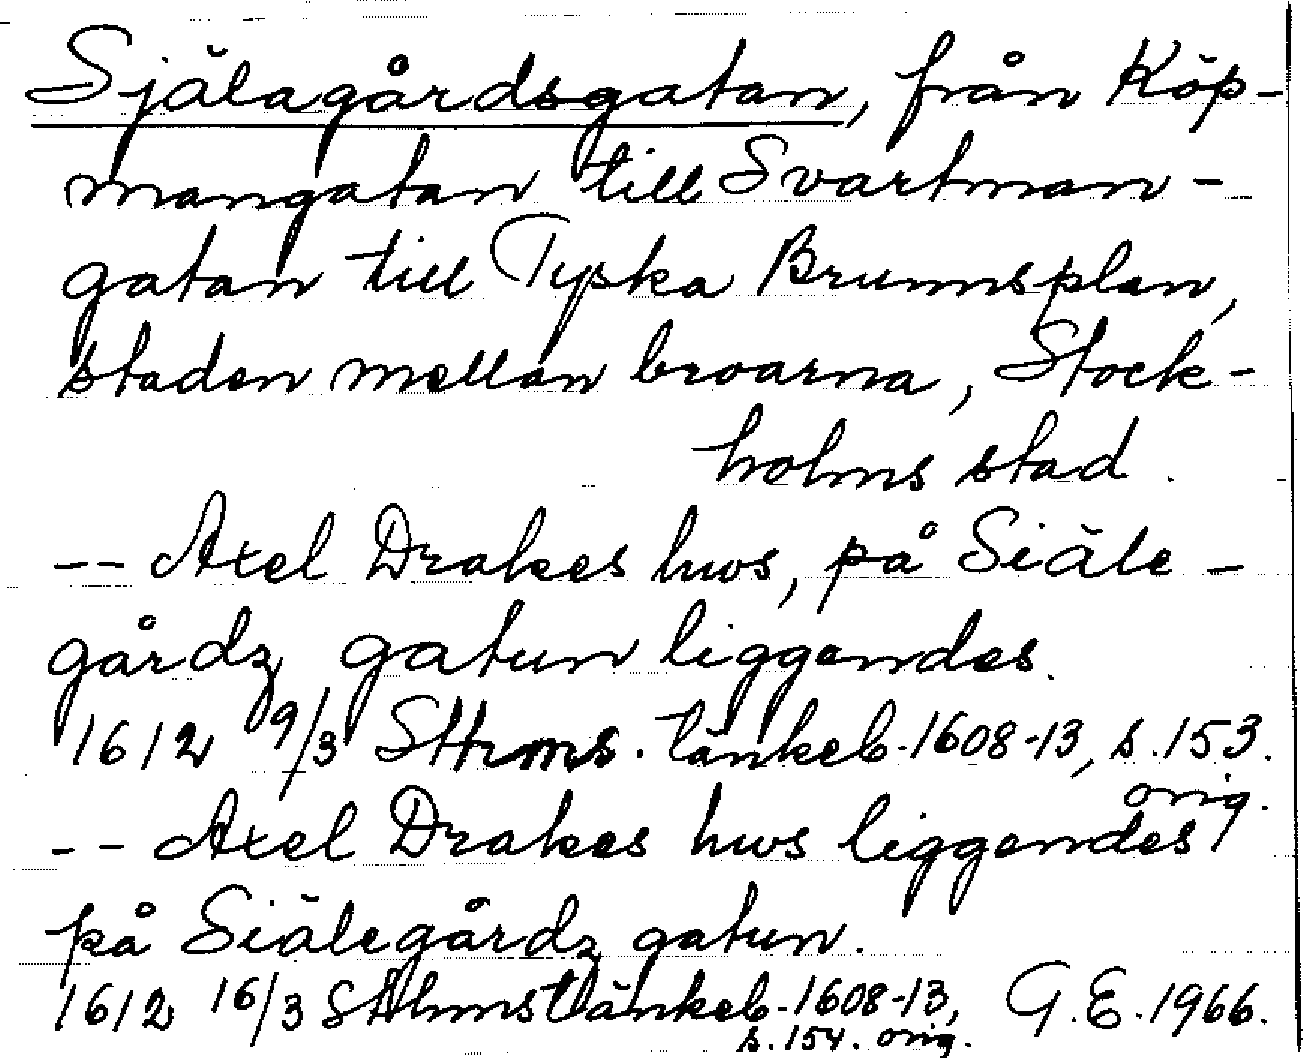 Själagårdsgatan, från Köp-
mangatan till Svartman-
gatan till Tyska Brunnsplan,
staden mellan broarna, Stock-
holms stad.
-- Axel Drakes hws, på Siäle-
gårdz gatun liggendes.
1612 9/3 Sthms. tänkeb. 1608-13, s. 153.
orig.
-- Axel Drakes hws liggendes
på Siälegårdz gatun.
1612 16/3 Sthms tänkeb. 1608-13, G.E. 1966.
s. 154. orig.